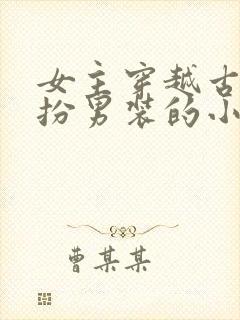 女主穿越古
扮男装的小
曹某某